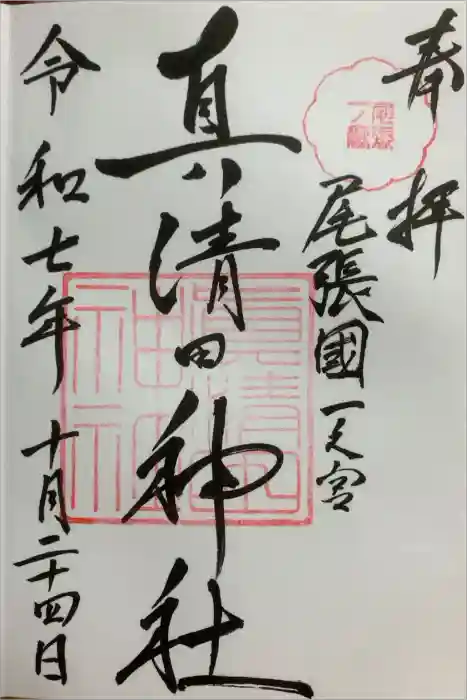 奉拝
尾張國一之宮
真清田神社
令和七年十月二十四日
真清田神社